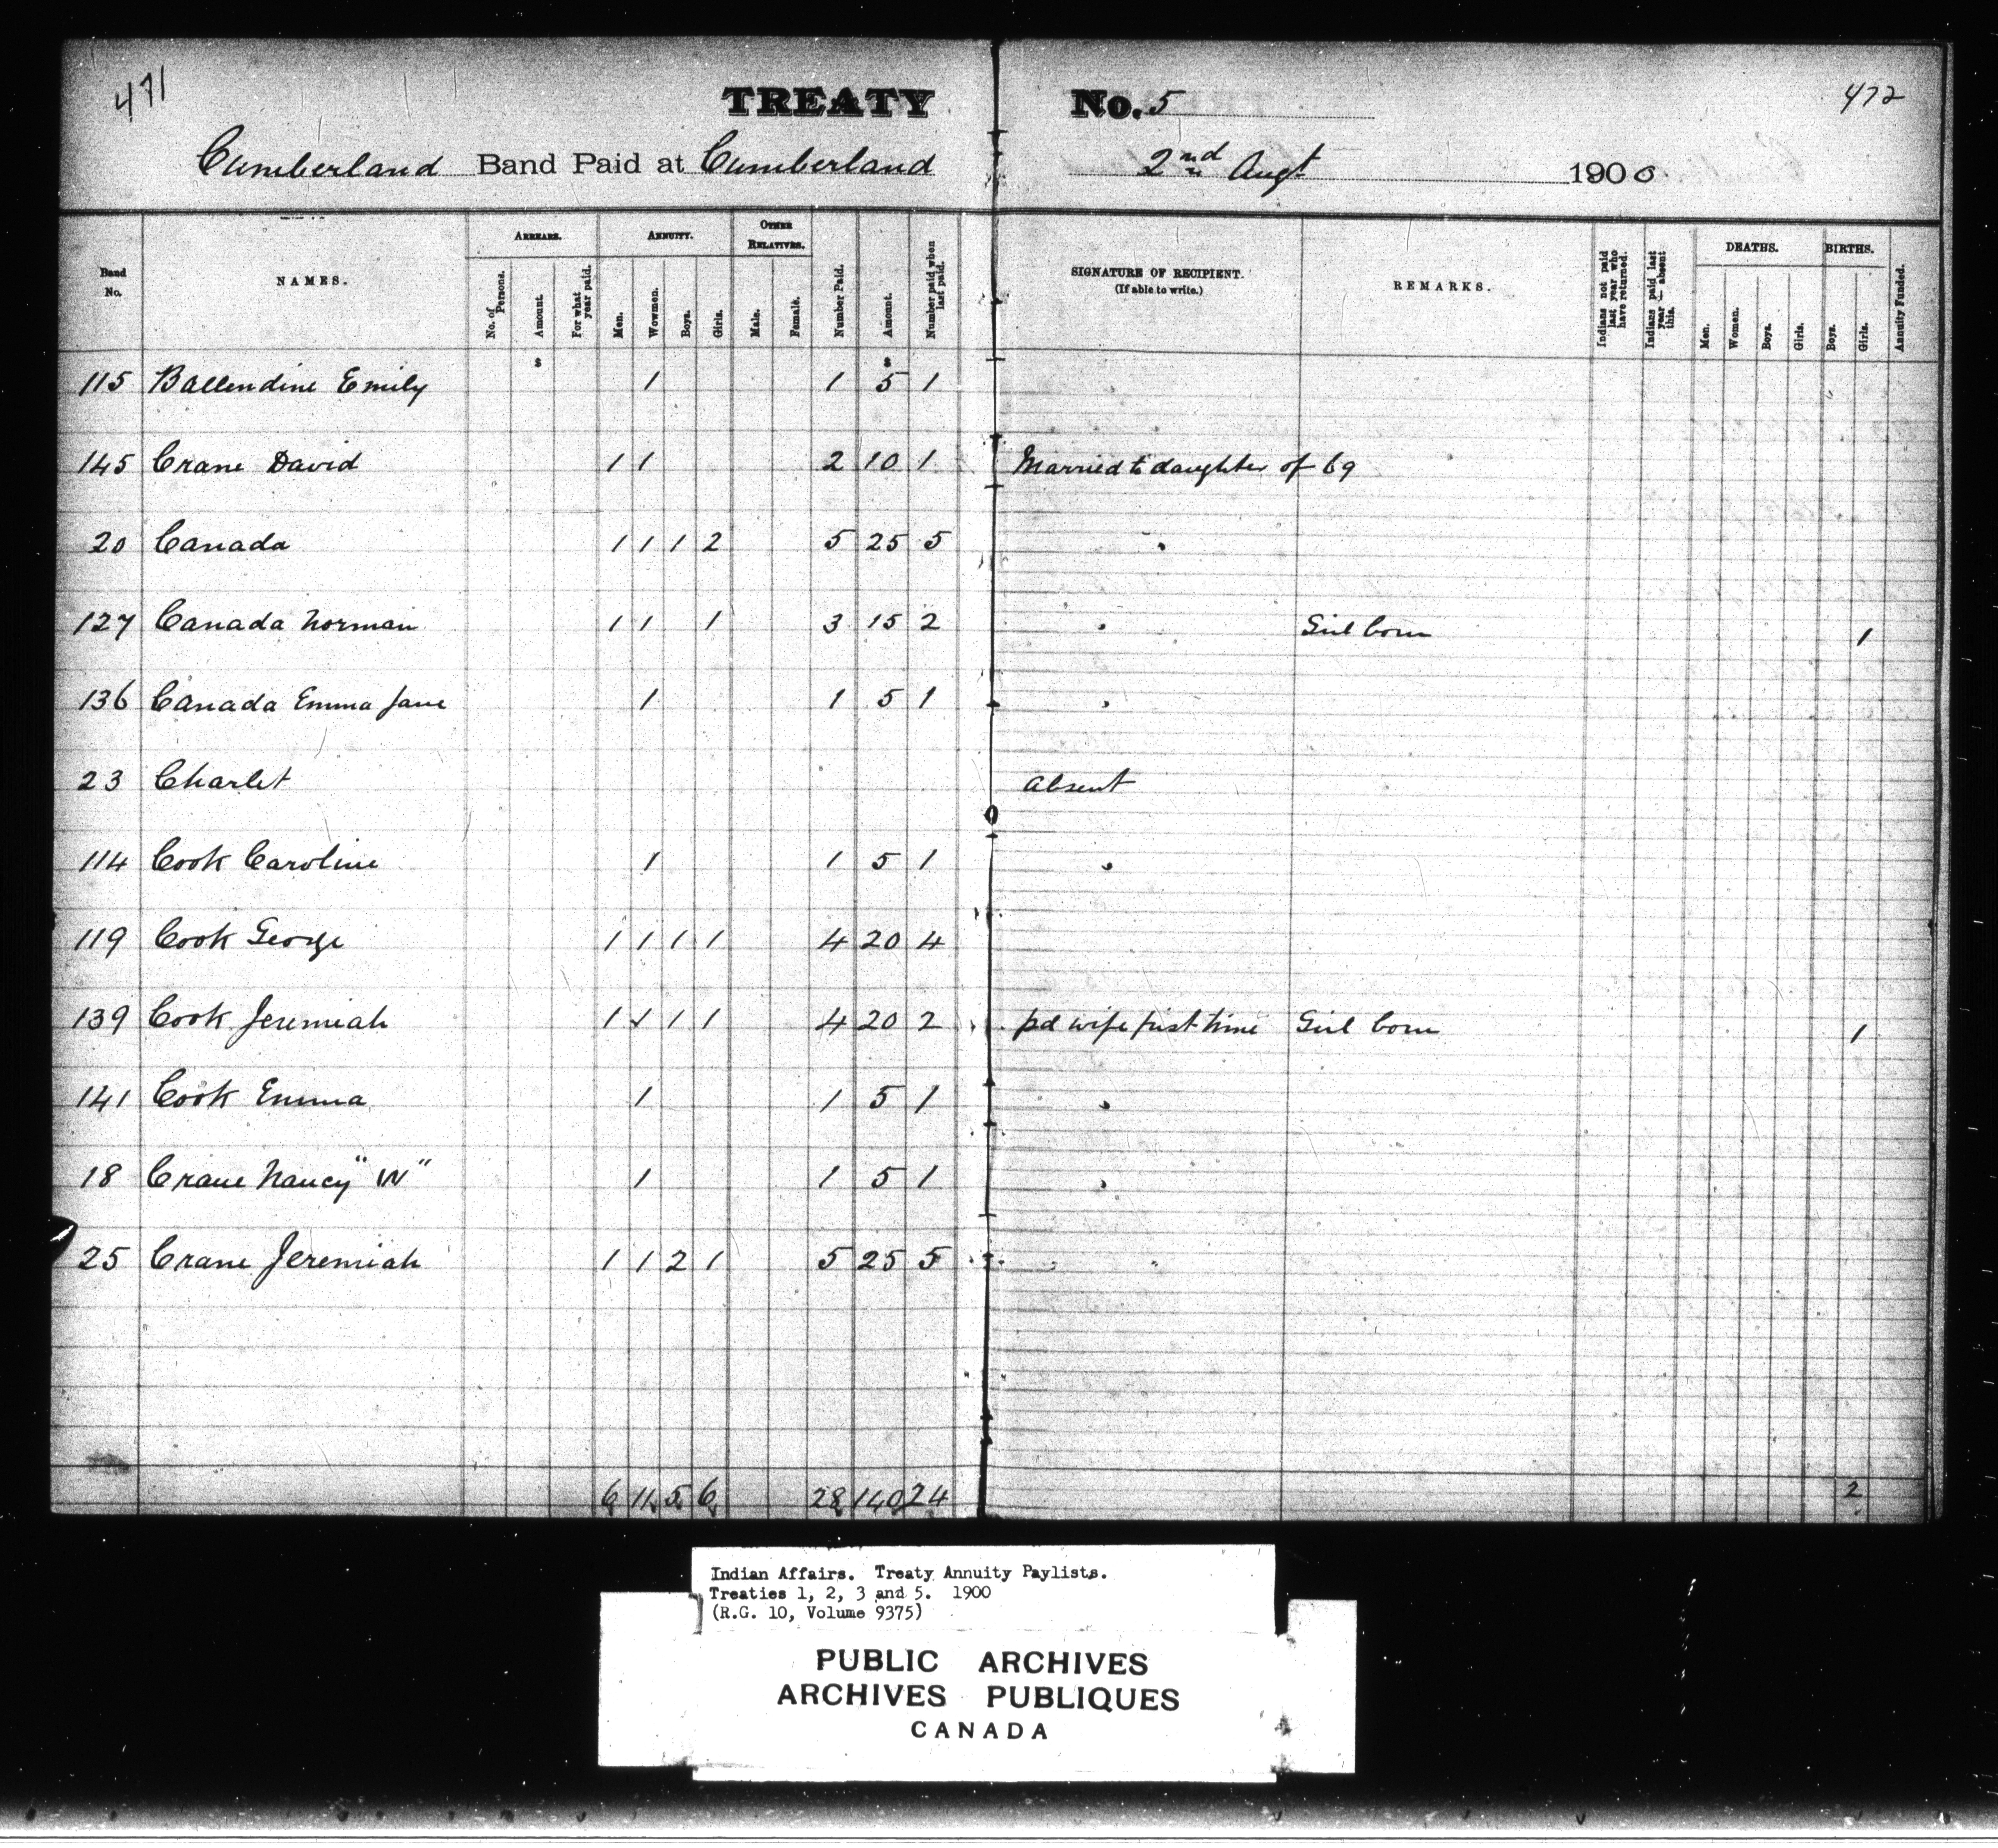 471
TREATY No. 5
472
Cumberland Band Paid at Cumberland 2nd Augt 1900
Band No.
NAMES.
ARREARS.
No. of Persons.
Amount.
For what year paid.
ANNUITY.
Men.
Wowmen.
Boys.
Girls.
OTHER RELATIVES.
Male.
Female.
Number Paid.
Amount.
Number paid when last paid.
SIGNATURE OF RECIPIENT.
(If able to write.)
REMARKS.
Indians not paid last year who have returned.
Indians paid last year — absent this.
DEATHS.
Men.
Women.
Boys.
Girls.
BIRTHS.
Boys.
Girls.
Annuity Funded.
$ $
115 Ballendine Emily 1 1 5 1
145 Crane David 1 1 2 10 1 Married to daughter of 69
20 Canada 1 1 1 2 5 25 5
127 Canada Norman 1 1 1 3 15 2 Girl born 1
136 Canada Emma Jane 1 1 5 1
23 Charlet absent
114 Cook Caroline 1 1 5 1
119 Cook George 1 1 1 1 4 20 4
139 Cook Jeremiah 1 1 1 1 4 20 2 pd wife first time Girl born 1
141 Cook Emma 1 1 5 1
18 Crane Nancy "W" 1 1 5 1
25 Crane Jeremiah 1 1 2 1 5 25 5
6 11 5 6 28 140 24 2
Indian Affairs. Treaty Annuity Paylists.
Treaties 1, 2, 3 and 5. 1900
(R.G. 10, Volume 9375)
PUBLIC ARCHIVES
ARCHIVES PUBLIQUES
CANADA